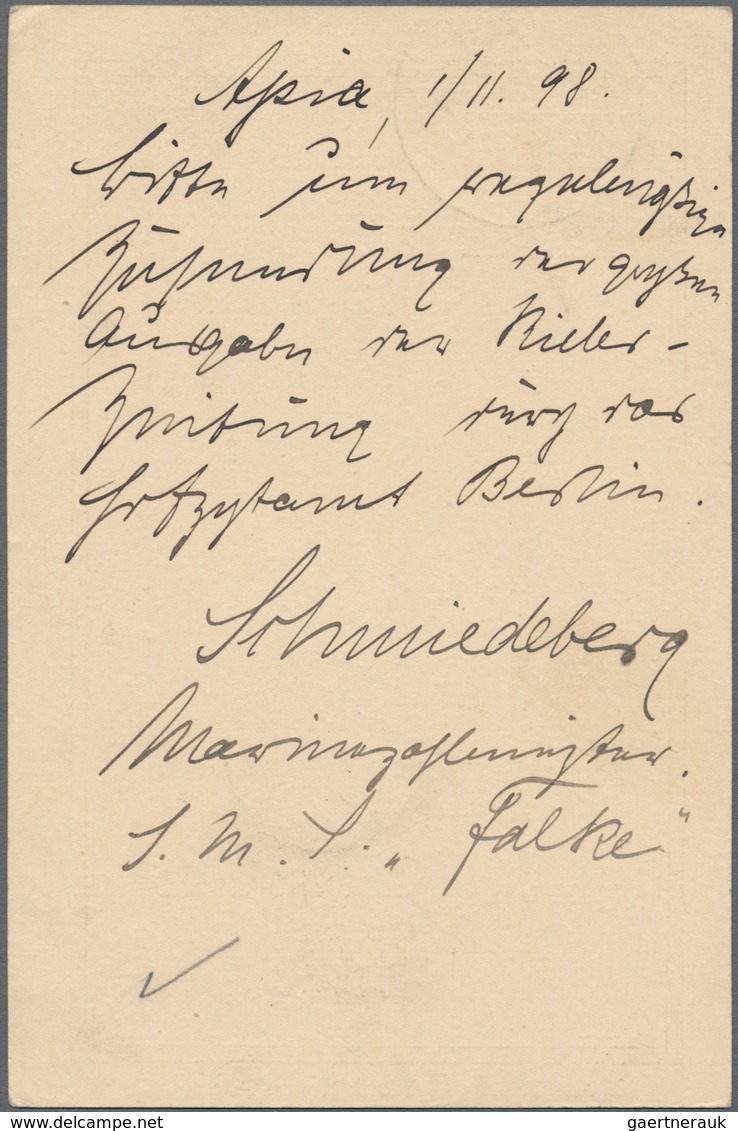 Apia, 1/11. 98.
Bitte um regelmäßige
Zusendung der großen
Ausgabe der Kieler-
Zeitung durch das
Hofpostamt Berlin.
Schmiedeberg
Marinezahlmeister.
S. M. S. „Falke"
gaertnerauk